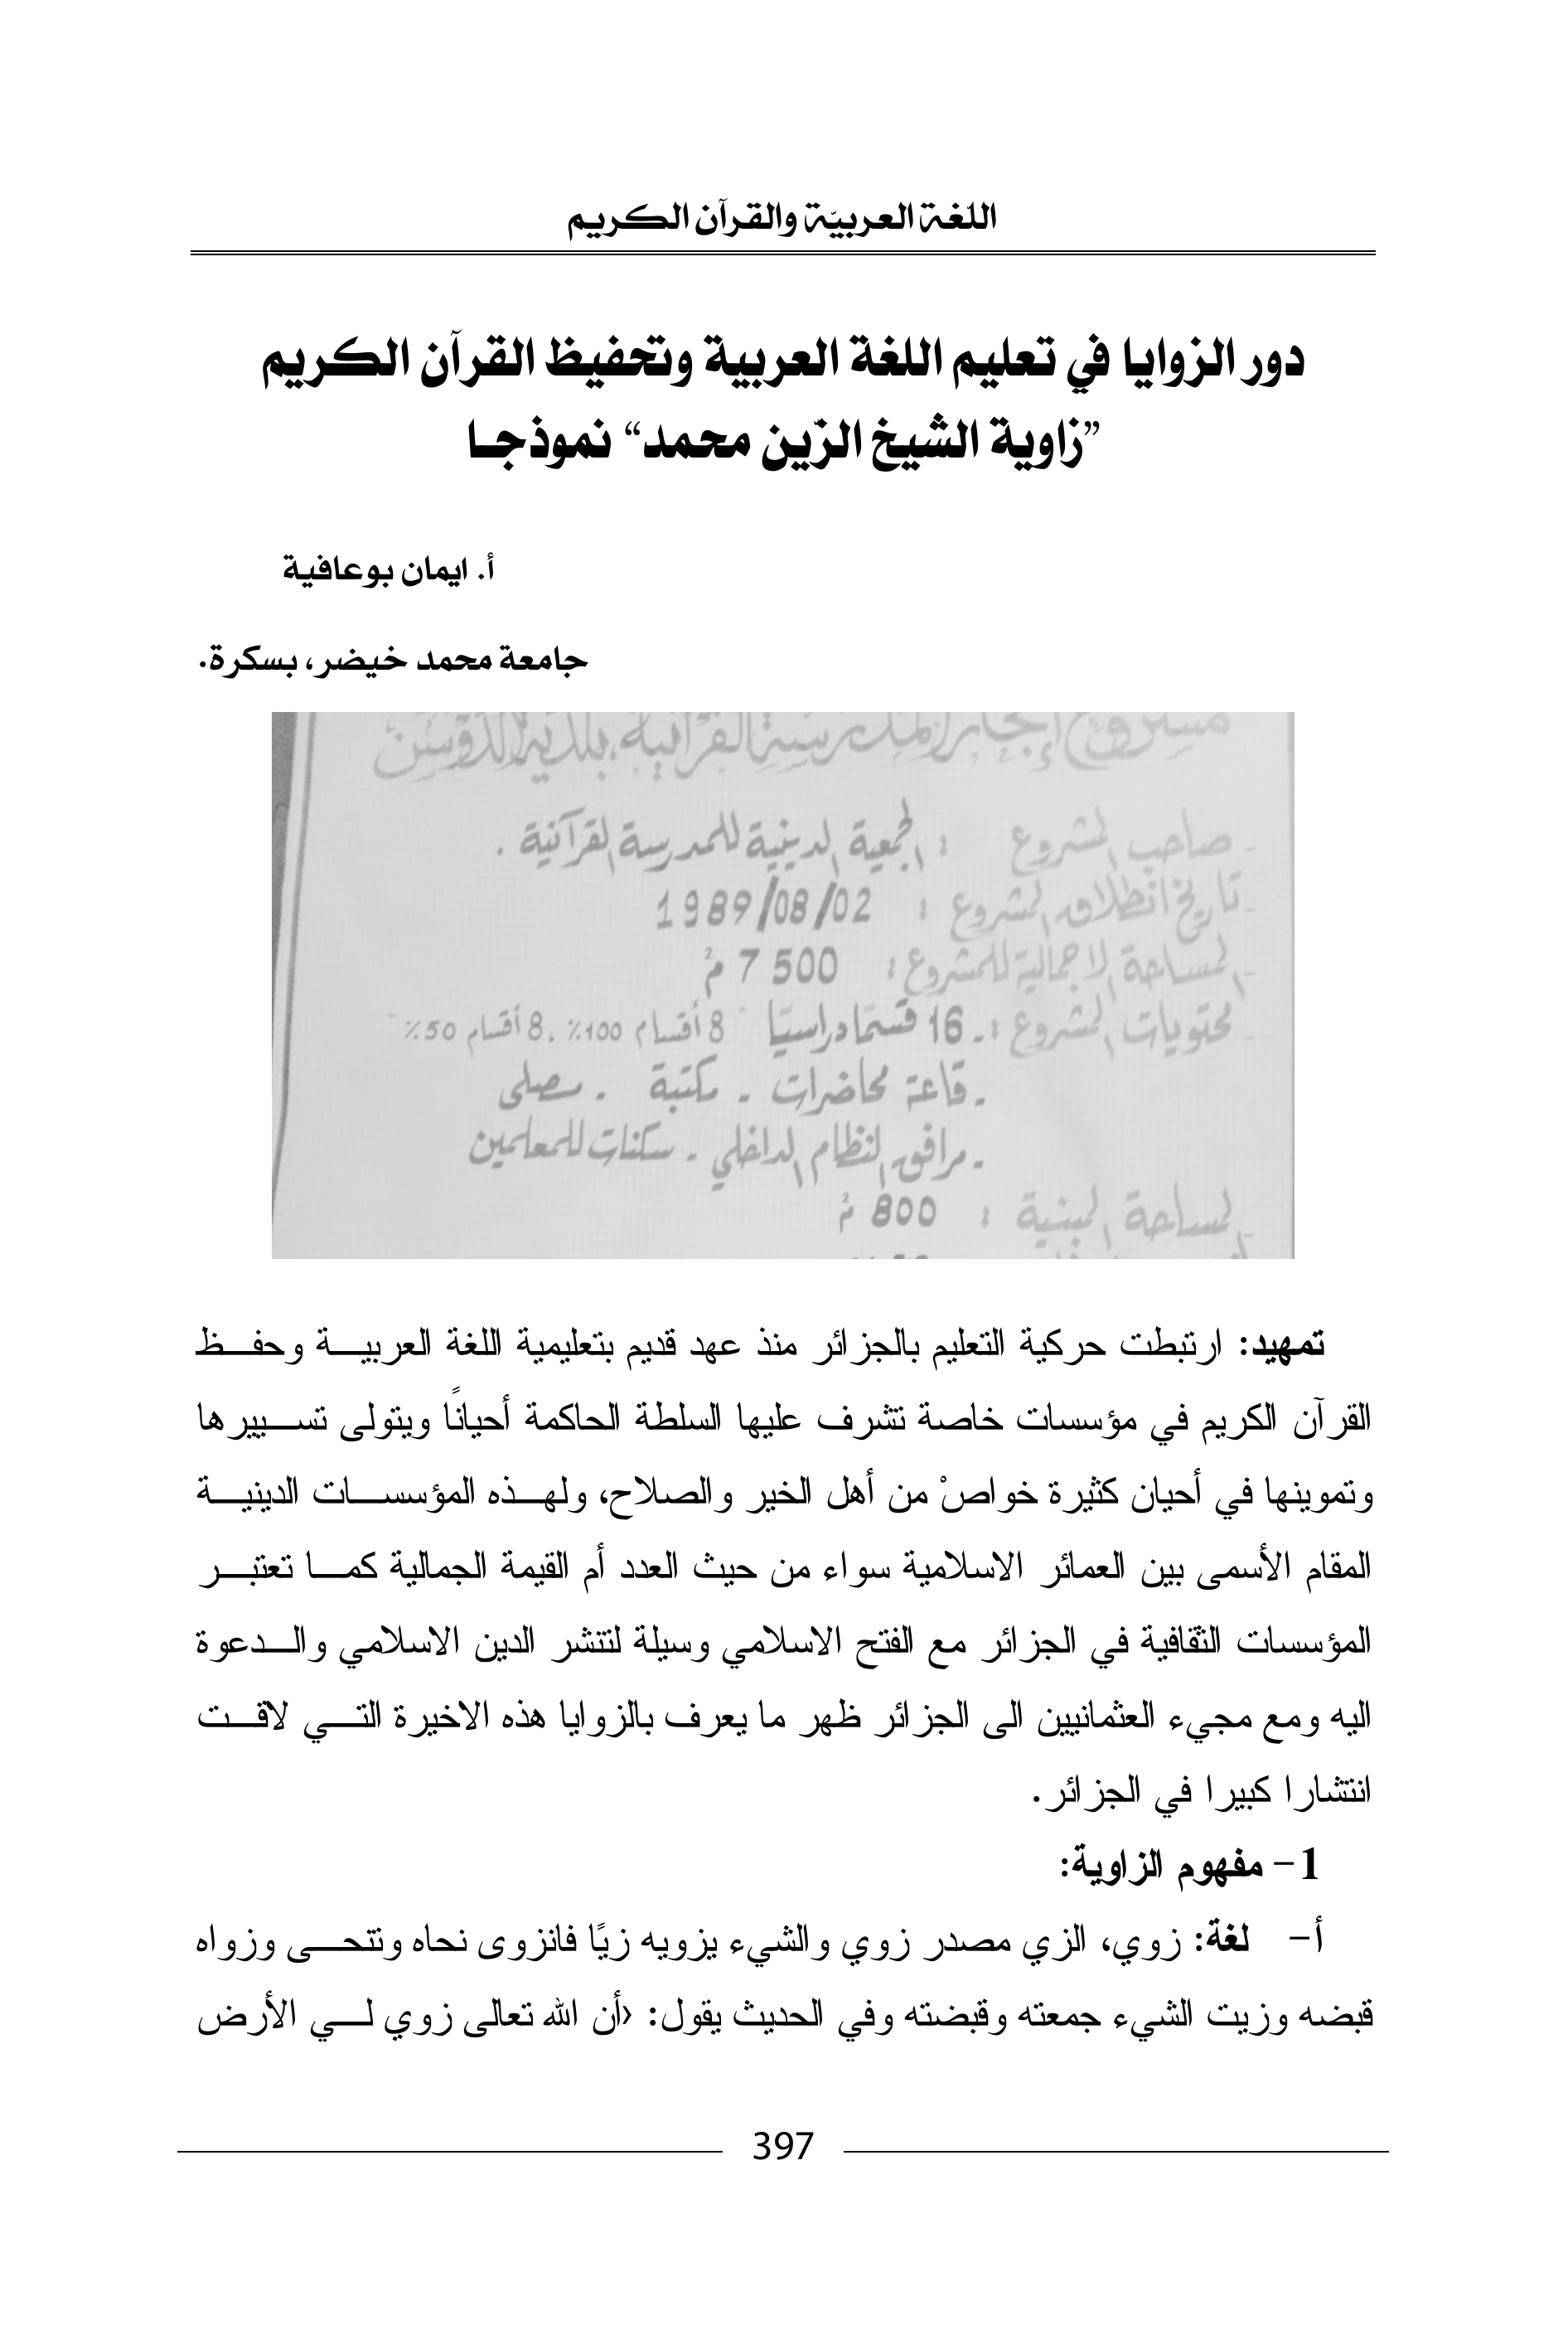 اللّغة العربيّة والقرآن الكريم
دور الزوايا في تعليم اللغة العربية وتحفيظ القرآن الكريم
”زاوية الشيخ الزّين محمد“ نموذجا
أ. ايمان بوعافية
جامعة محمد خيضر، بسكرة.
مشروع إنجاز المدرسة القرآنية ببلدية الدوسن
- صاحب المشروع : الجمعية الدينية للمدرسة القرآنية .
- تاريخ انطلاق المشروع : 1989/08/02
- المساحة الاجمالية للمشروع : 7 500 م²
- محتويات المشروع : - 16 قسمًا دراسيًا 8 أقسام 100٪ . 8 أقسام 50٪
- قاعة محاضرات - مكتبة - مصلى
- مرافق النظام الداخلي - سكنات للمعلمين
- المساحة المبنية : 800 م²
تمهيد: ارتبطت حركية التعليم بالجزائر منذ عهد قديم بتعليمية اللغة العربية وحفظ
القرآن الكريم في مؤسسات خاصة تشرف عليها السلطة الحاكمة أحيانًا ويتولى تسييرها
وتموينها في أحيان كثيرة خواصْ من أهل الخير والصلاح، ولهذه المؤسسات الدينية
المقام الأسمى بين العمائر الاسلامية سواء من حيث العدد أم القيمة الجمالية كما تعتبر
المؤسسات الثقافية في الجزائر مع الفتح الاسلامي وسيلة لتنشر الدين الاسلامي والدعوة
اليه ومع مجيء العثمانيين الى الجزائر ظهر ما يعرف بالزوايا هذه الاخيرة التي لاقت
انتشارا كبيرا في الجزائر.
1- مفهوم الزاوية:
أ- لغة: زوي، الزي مصدر زوي والشيء يزويه زيًا فانزوى نحاه وتنحى وزواه
قبضه وزيت الشيء جمعته وقبضته وفي الحديث يقول: ‹أن الله تعالى زوي لي الأرض
397